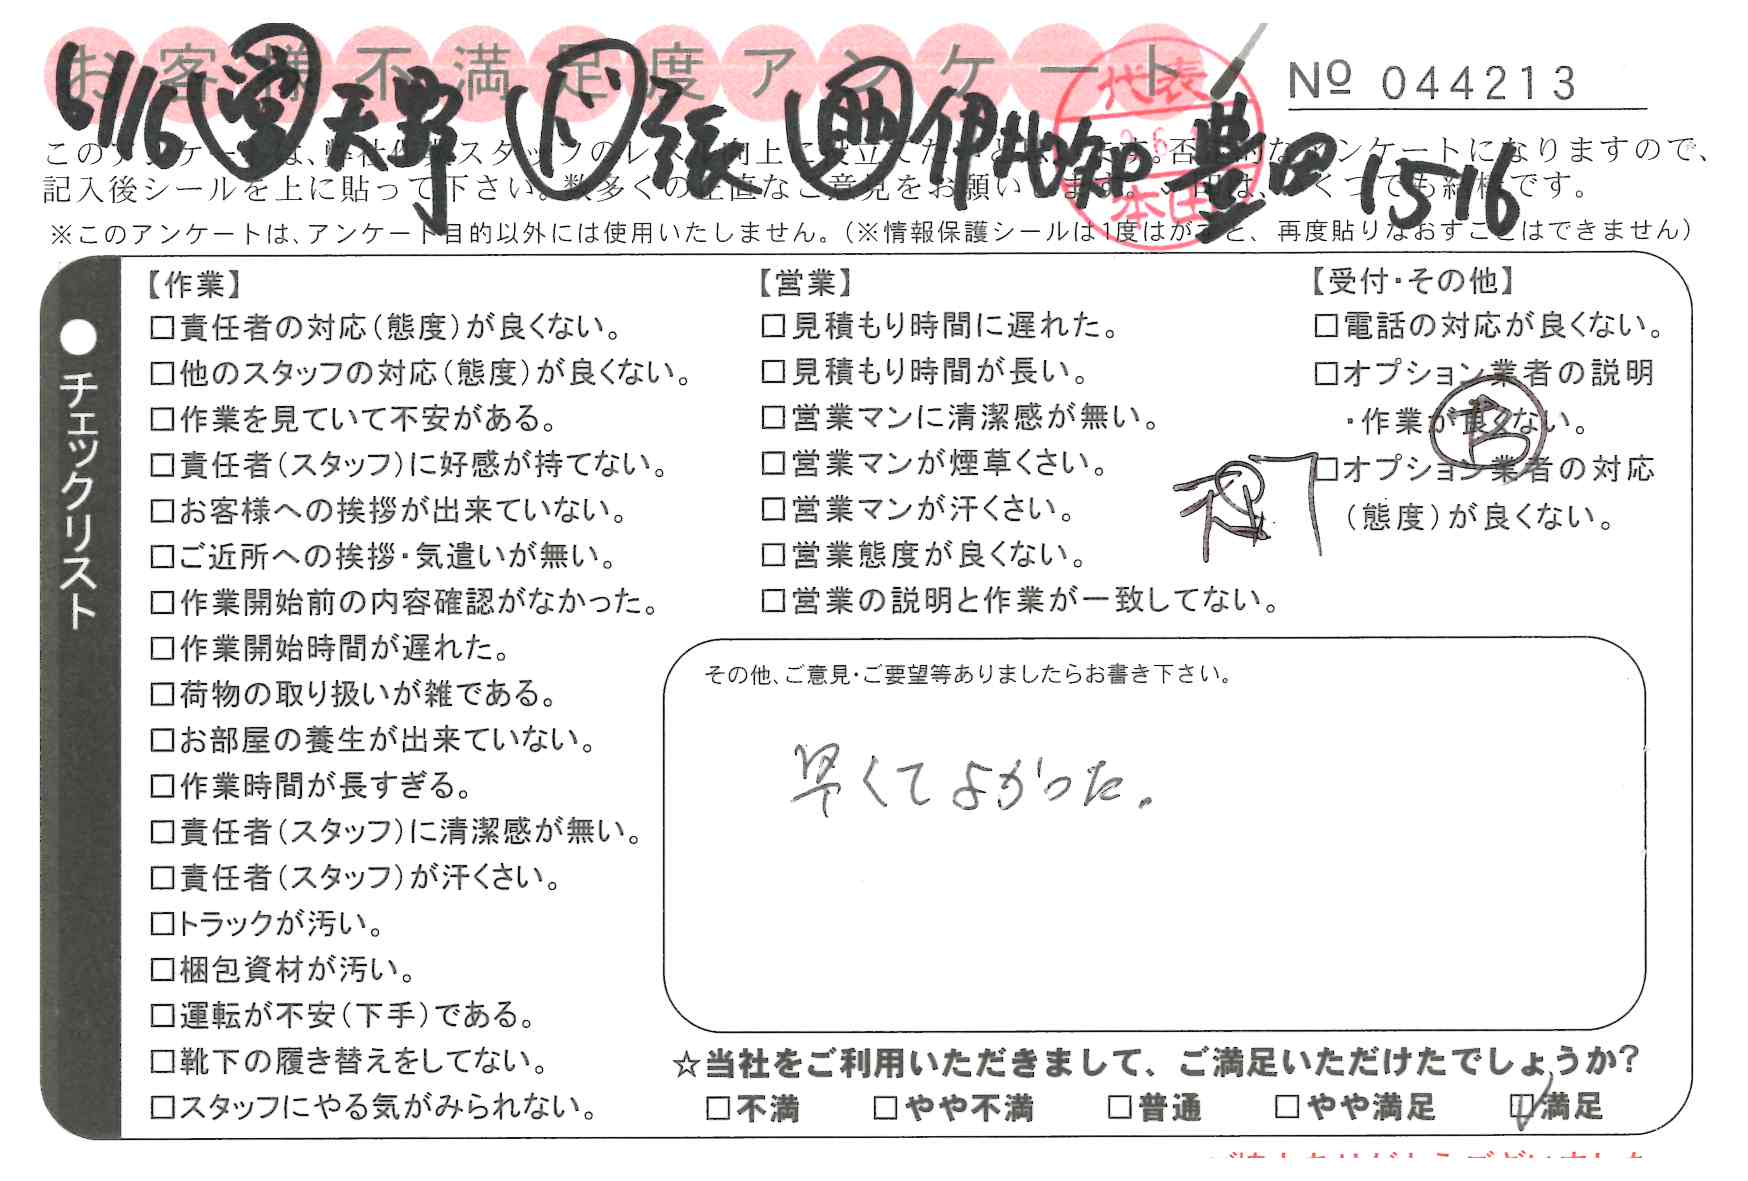 お客様不満足度アンケート
Nº 044213
6/16 営 天野 ド 張 伊比 豊田 1516
代表
本田
このアンケートは、弊社作業スタッフのレベル向上に役立てたいと思います。否定的なアンケートになりますので、
記入後シールを上に貼って下さい。数多くの正直なご意見をお願いします。☑印は、いくつでも結構です。
※このアンケートは、アンケート目的以外には使用いたしません。(※情報保護シールは1度はがすと、再度貼りなおすことはできません)
●チェックリスト
【作業】
□責任者の対応(態度)が良くない。
□他のスタッフの対応(態度)が良くない。
□作業を見ていて不安がある。
□責任者(スタッフ)に好感が持てない。
□お客様への挨拶が出来ていない。
□ご近所への挨拶・気遣いが無い。
□作業開始前の内容確認がなかった。
□作業開始時間が遅れた。
□荷物の取り扱いが雑である。
□お部屋の養生が出来ていない。
□作業時間が長すぎる。
□責任者(スタッフ)に清潔感が無い。
□責任者(スタッフ)が汗くさい。
□トラックが汚い。
□梱包資材が汚い。
□運転が不安(下手)である。
□靴下の履き替えをしてない。
□スタッフにやる気がみられない。
【営業】
□見積もり時間に遅れた。
□見積もり時間が長い。
□営業マンに清潔感が無い。
□営業マンが煙草くさい。
□営業マンが汗くさい。
□営業態度が良くない。
□営業の説明と作業が一致してない。
【受付・その他】
□電話の対応が良くない。
□オプション業者の説明
・作業が良くない。
□オプション業者の対応
(態度)が良くない。
その他、ご意見・ご要望等ありましたらお書き下さい。
早くてよかった。
☆当社をご利用いただきまして、ご満足いただけたでしょうか?
□不満 □やや不満 □普通 □やや満足 ☑満足